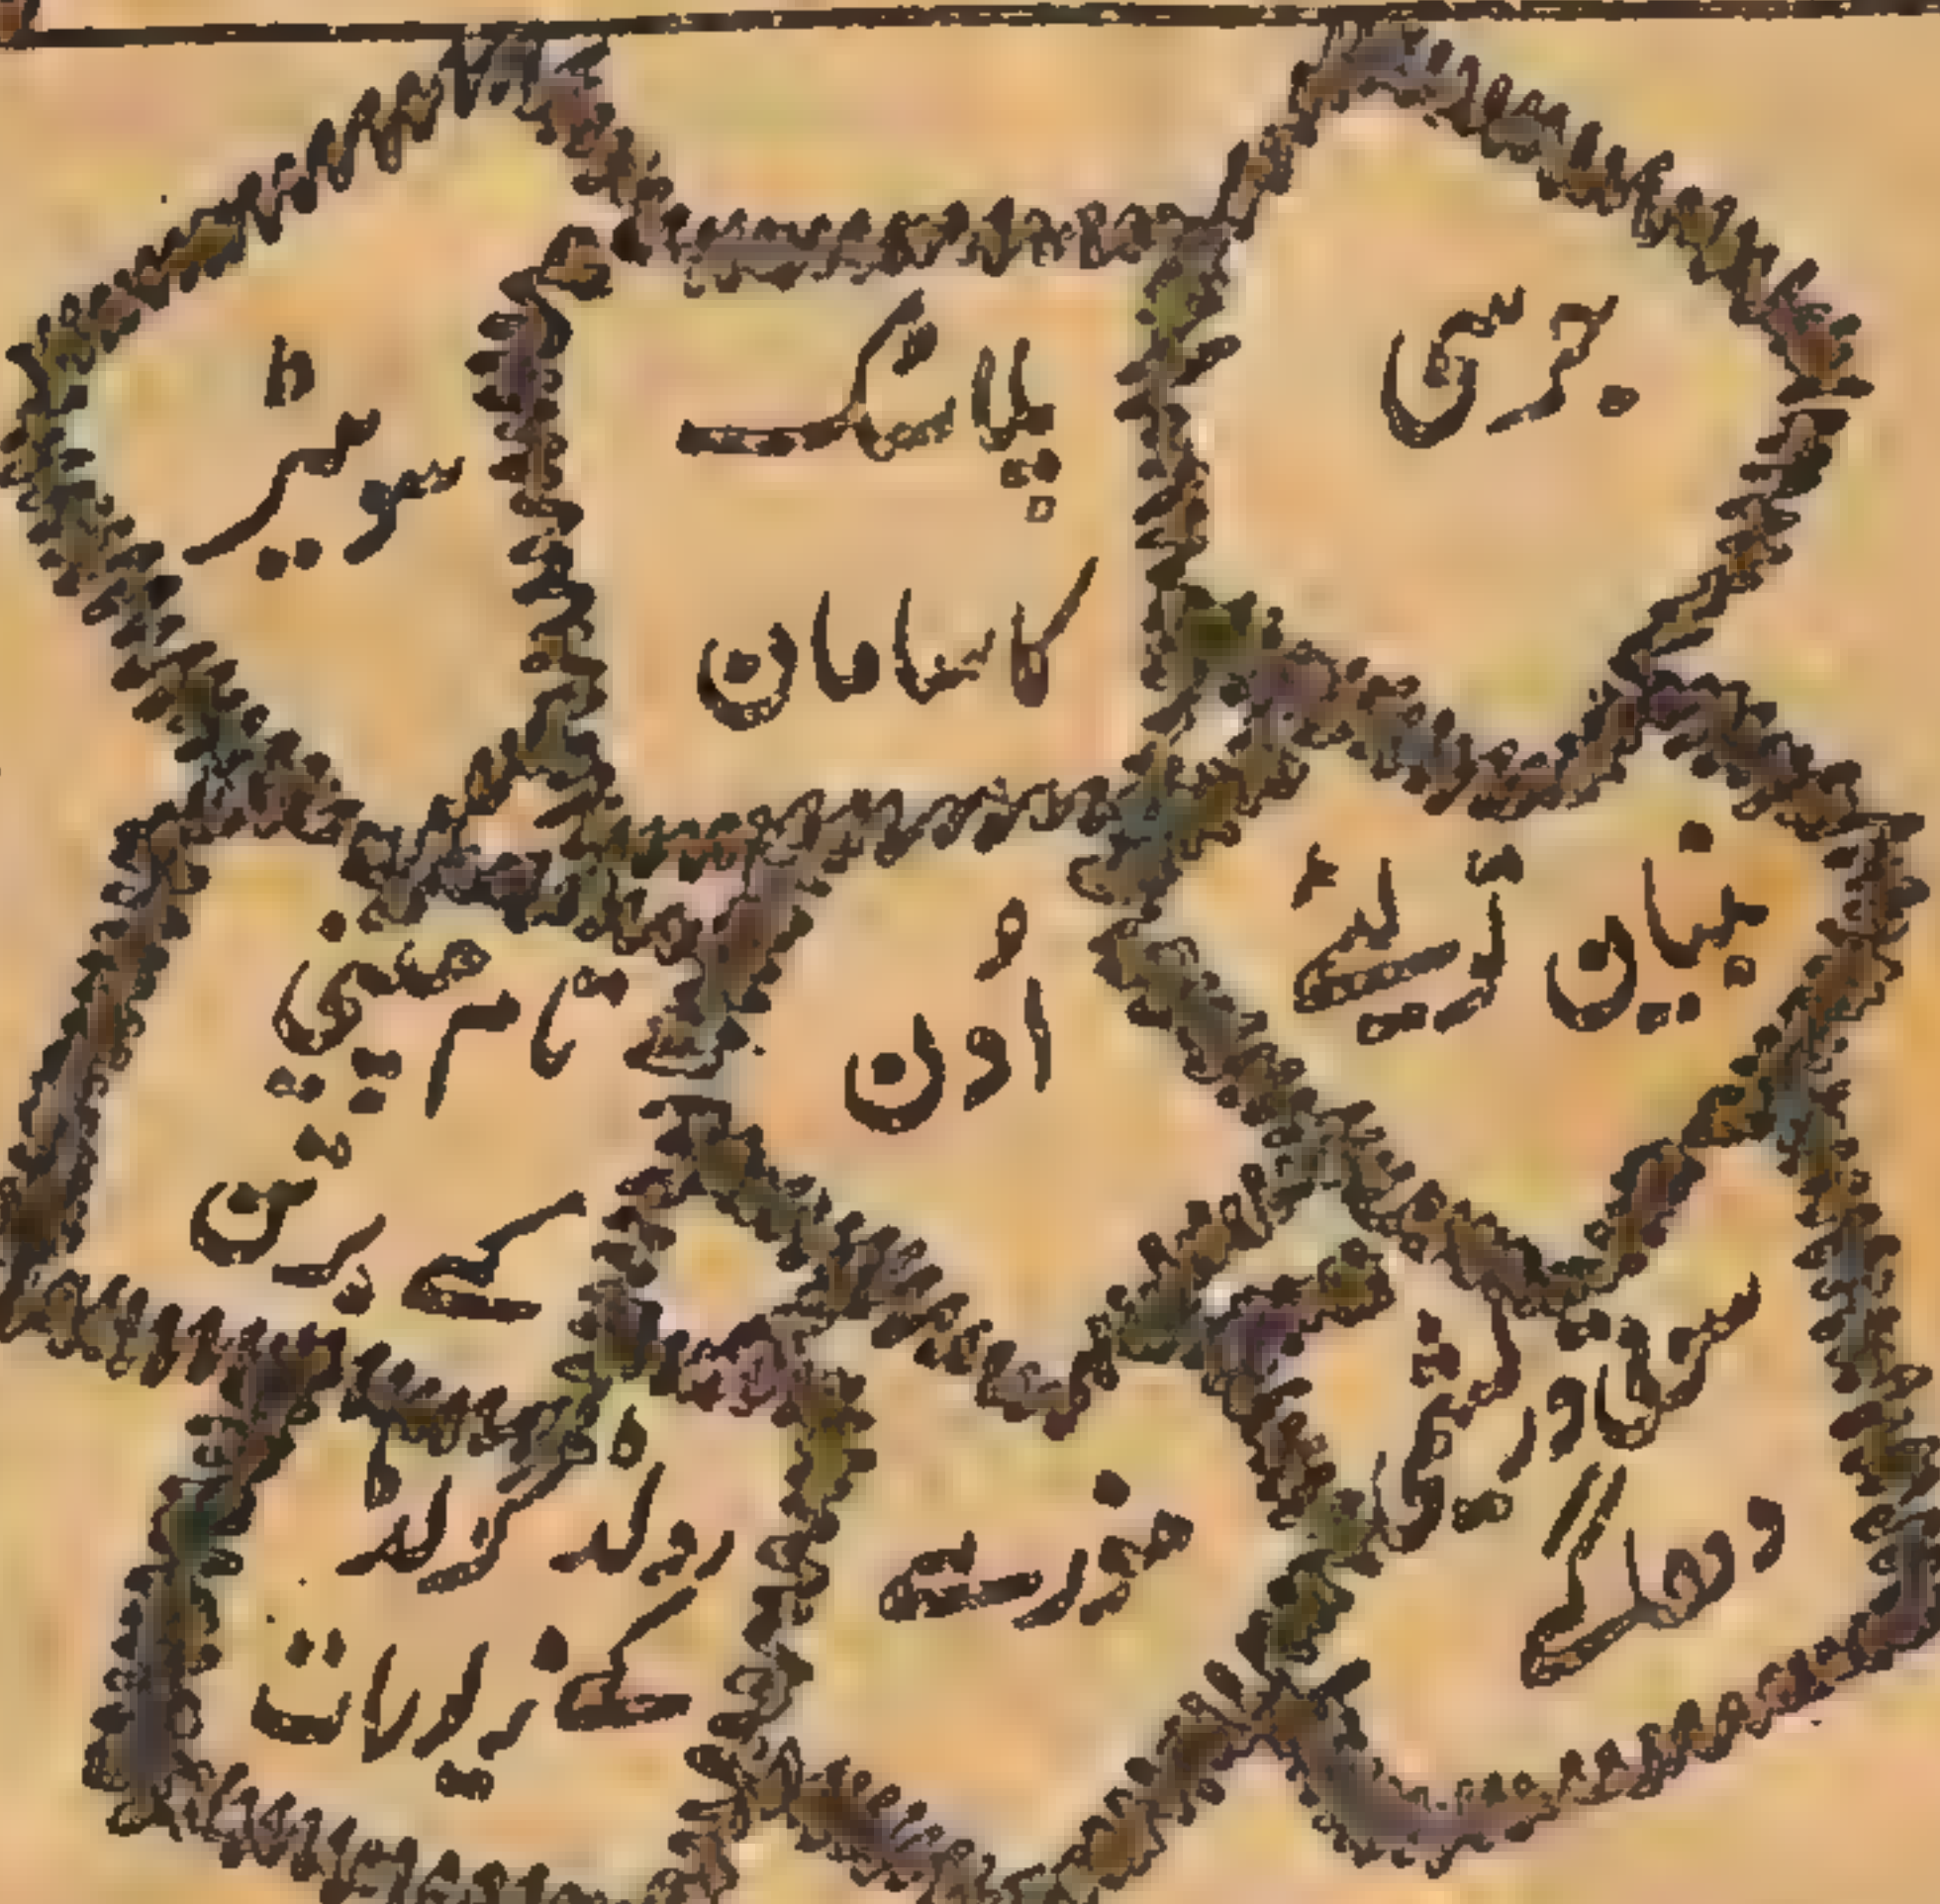 جرسی
پلاسٹک
کا سامان
سویٹر
بنیان تولیے
اُون
تام چینی
کے برتن
سوتی اور ریشمی
دھاگے
موزے
رولڈ گولڈ
کے زیورات